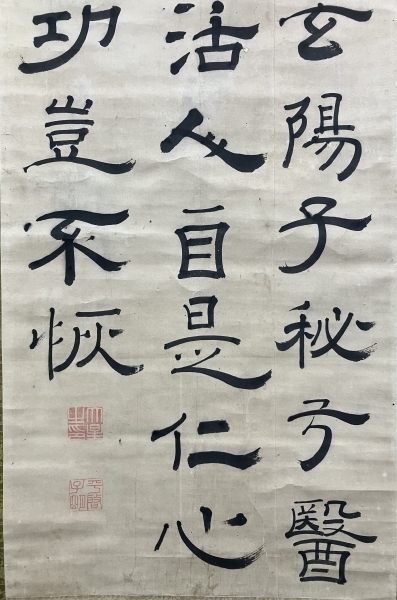 玄陽子秘方醫
活人自是仁心
功豈不恢